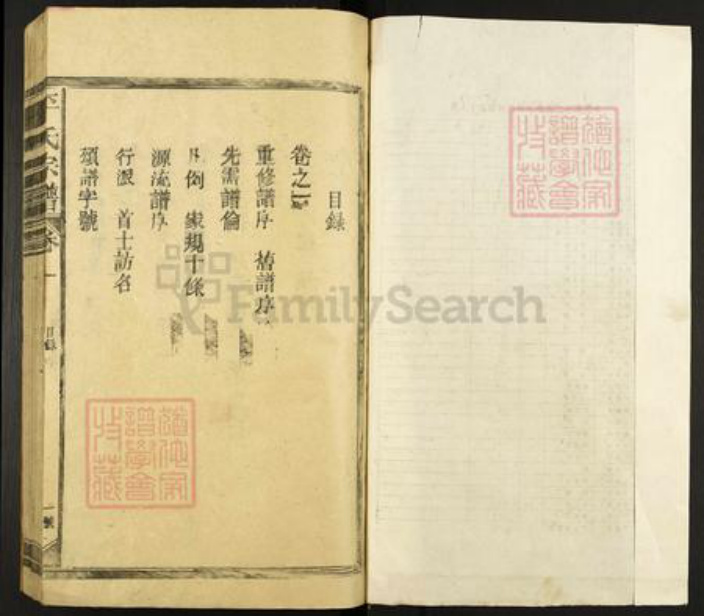 目錄
卷之一
重修譜序 舊譜序
先儒譜倫
凡例 家規十條
源流譜序
行派 首士訪名
領譜字號
氏宗譜
卷一
目錄
一號
FamilySearch
譜學會
收藏
譜學會
收藏